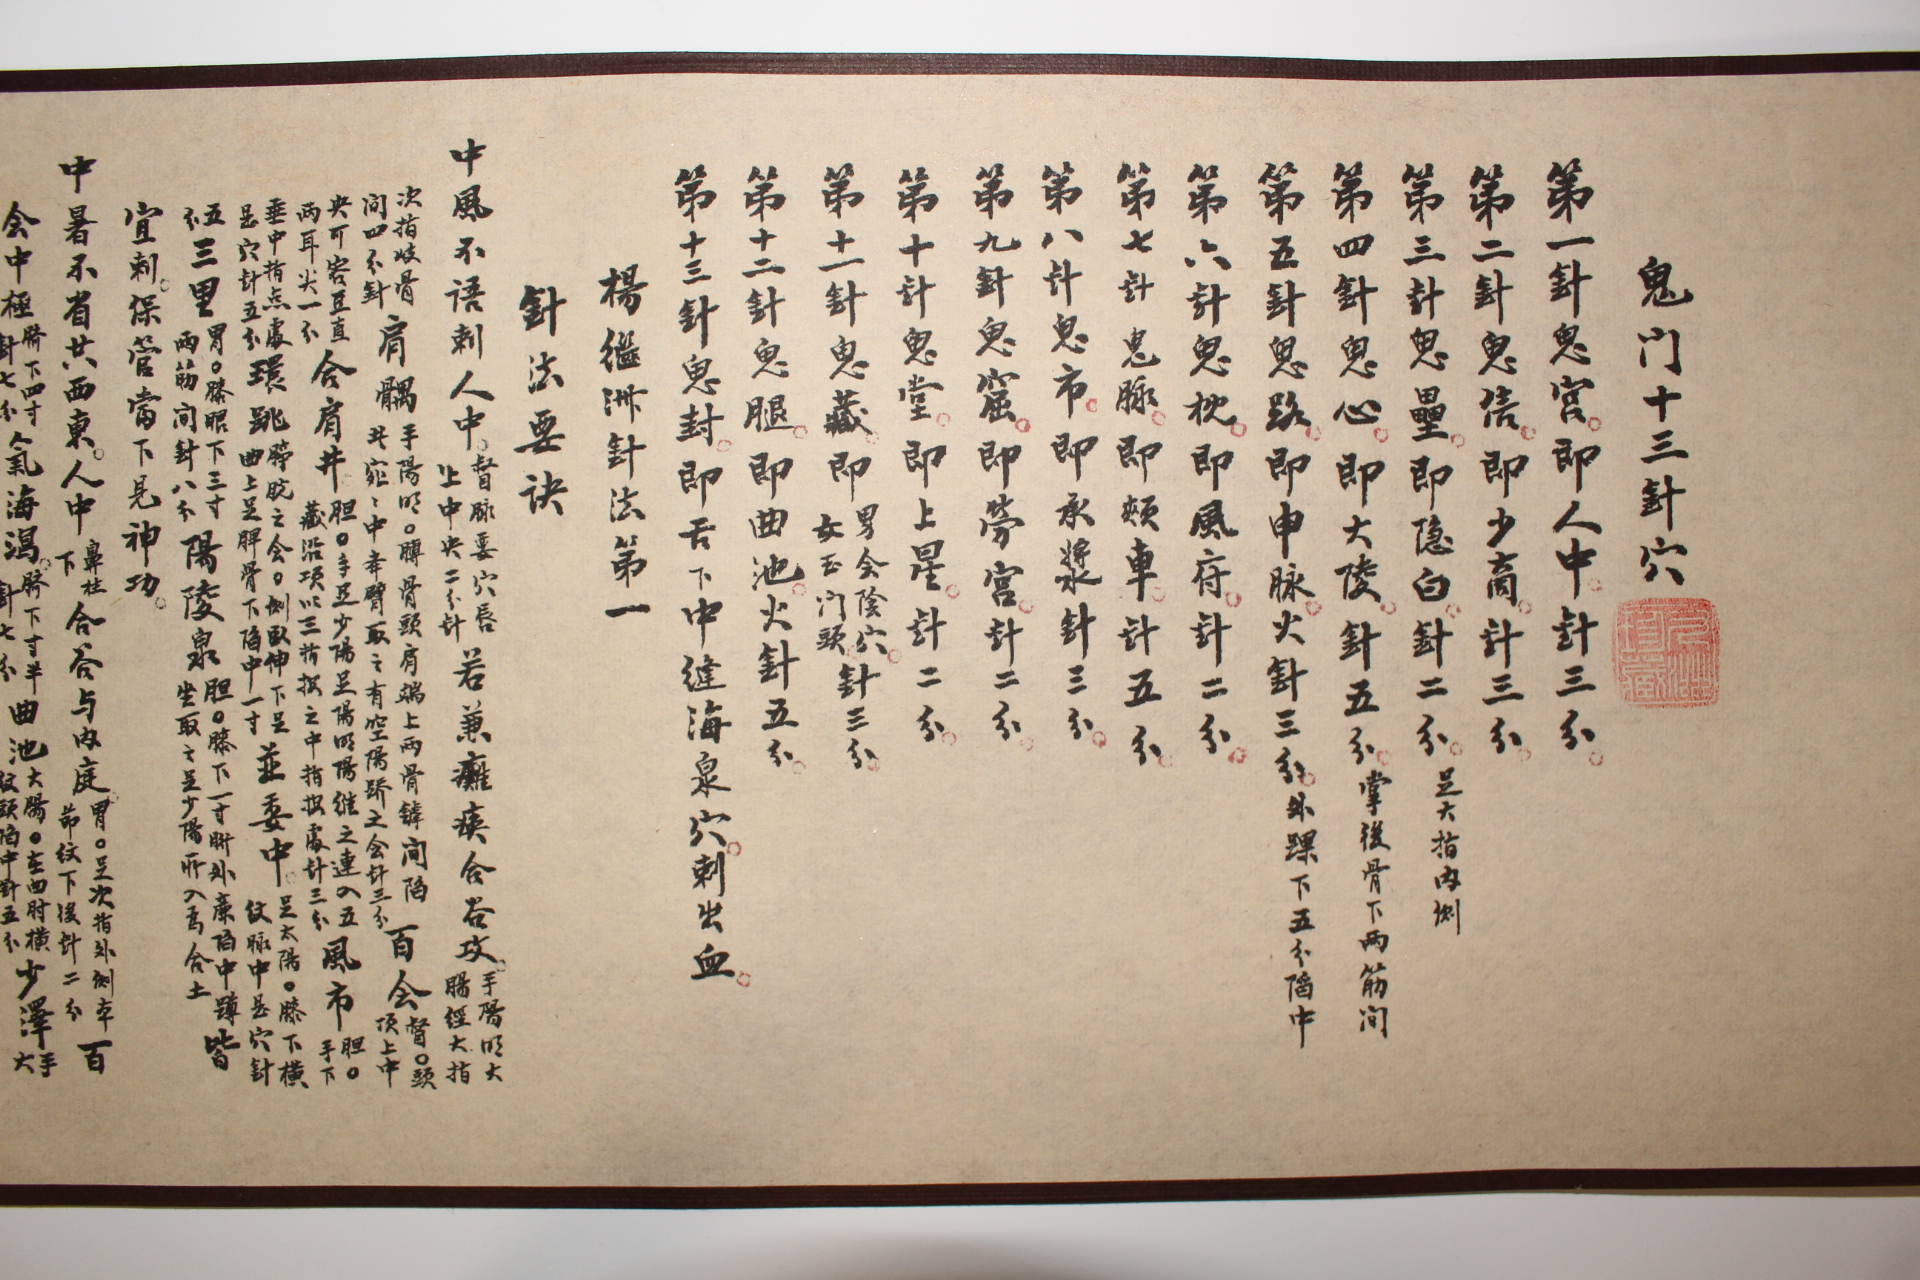 鬼门十三針穴
第一針鬼宮即人中針三分
第二針鬼信即少商針三分
第三針鬼壘即隐白針二分足大指内側
第四針鬼心即大陵針五分掌後骨下两筋间
第五針鬼路即申脉火針三分外踝下五分陷中
第六針鬼枕即風府針二分
第七針鬼脉即頰車針五分
第八針鬼市即承漿針三分
第九針鬼窟即勞宮針二分
第十針鬼堂即上星針二分
第十一針鬼藏即男会陰穴女玉门頭針三分
第十二針鬼腿即曲池火針五分
第十三針鬼封即舌下中縫海泉穴刺出血
楊繼洲針法第一
針法要诀
中風不语刺人中督脉要穴唇上中央二分針若兼癱痪合谷攻手陽明大腸經大指
次指歧骨间四分針肩髃手陽明膊骨頭肩端上两骨罅间陷中舉臂取之有空陽跷之会針三分百会督頭頂上中
央可容豆直两耳尖一分合肩井胆手足少陽足陽明陽维之連入五藏沿項以三指按之中指按處針三分風市胆手下
垂中指点處是穴針五分環跳胯脘之会側卧伸下足曲上足髀骨下陷中一寸並委中足太陽膝下横纹脉中是穴針
五分三里胃膝眼下三寸两筋间針八分陽陵泉胆膝下一寸胻外廉陷中蹲坐取之足少陽所入为合土皆
宜刺保管當下見神功
中暑不省共西東人中鼻柱下合谷与内庭胃足次指外側本节纹下後針二分百
会中極臍下四寸針七分氣海濕臍下寸半針七分曲池大腸在曲肘横纹頭陷中針五分少澤手大